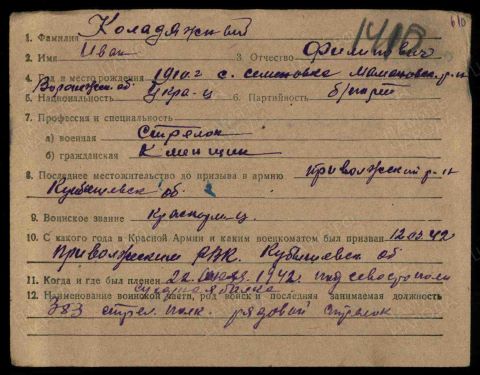 1418
б/о
1. Фамилия Коладяжный
2. Имя Иван 3. Отчество Филипович
4. Год и место рождения 1910 г с. семеновка Мамоновск. р-н
Воронежск. об.
5. Национальность Укра-ц 6. Партийность б/парт
7. Профессия и специальность
а) военная Стрелок
б) гражданская Каменщик
8. Последнее местожительство до призыва в армию приволжский р-н
Куйбышевск об.
9. Воинское звание Красноарм-ц.
10. С какого года в Красной Армии и каким военкоматом был призван 12.03.42
Приволжским РВК. Куйбышевск об
11. Когда и где был пленен 22. 1942. под севостополи
12. Наименование воинской части, род войск и последняя занимаемая должность
383 стрел. полк. рядовой стрелок